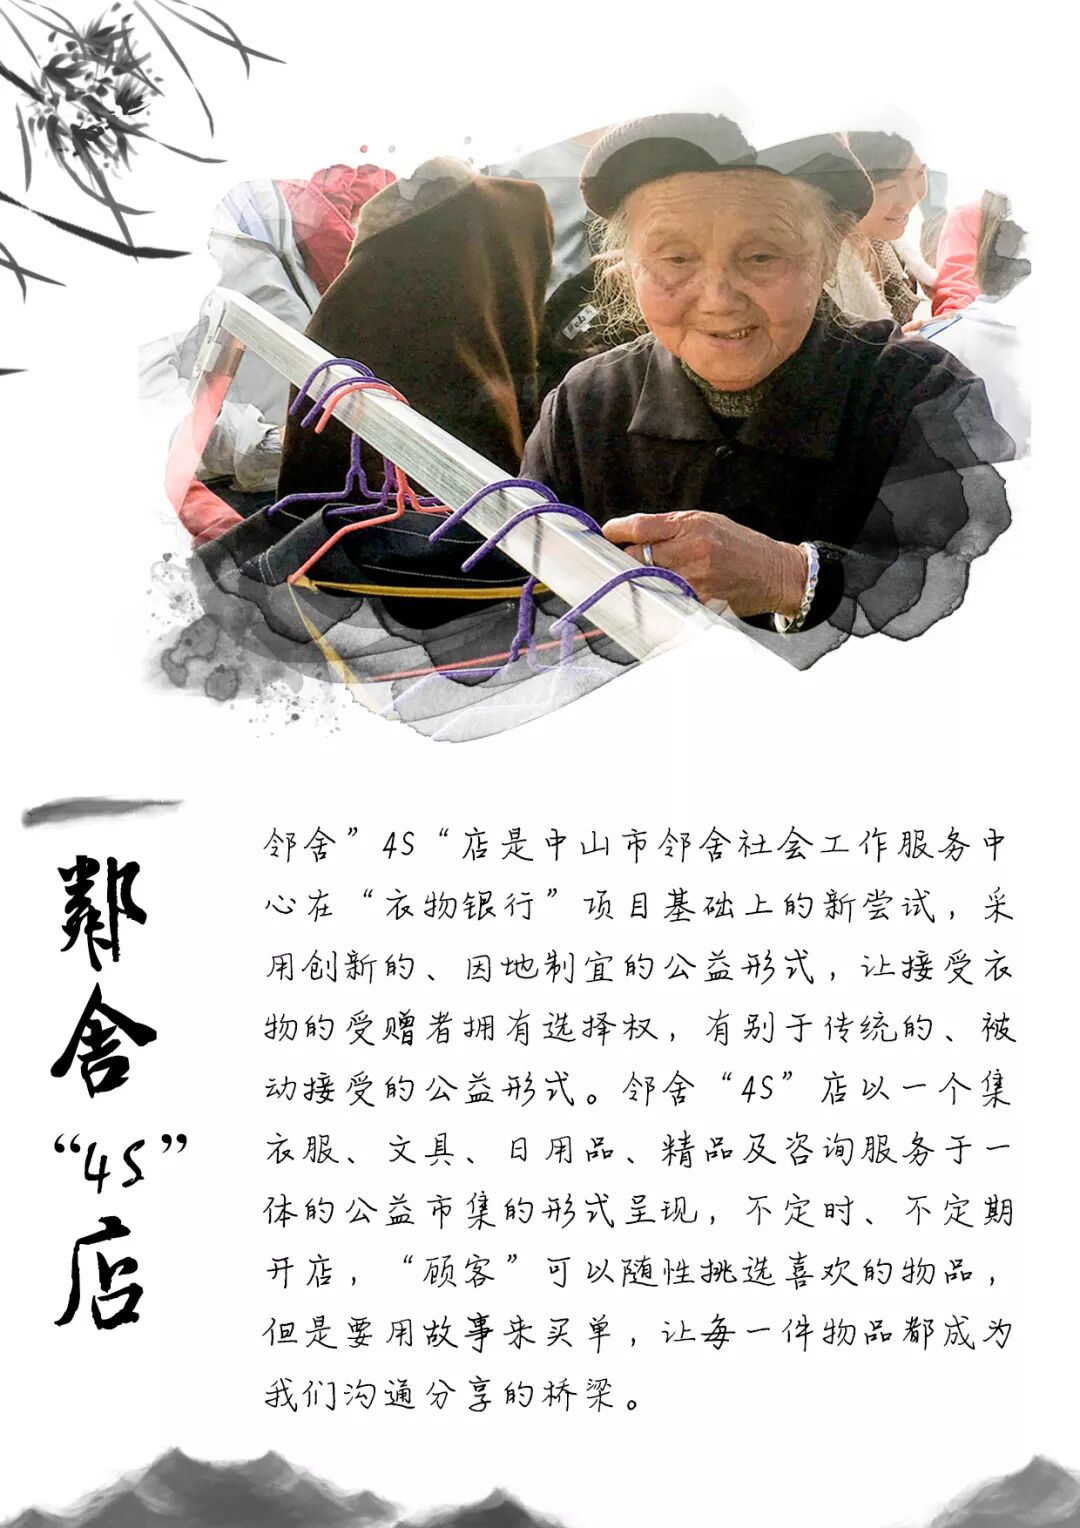 鄰舍“4S”店
邻舍”4S“店是中山市邻舍社会工作服务中
心在“衣物银行”项目基础上的新尝试，采
用创新的、因地制宜的公益形式，让接受衣
物的受赠者拥有选择权，有别于传统的、被
动接受的公益形式。邻舍“4S”店以一个集
衣服、文具、日用品、精品及咨询服务于一
体的公益市集的形式呈现，不定时、不定期
开店，“顾客”可以随性挑选喜欢的物品，
但是要用故事来买单，让每一件物品都成为
我们沟通分享的桥梁。